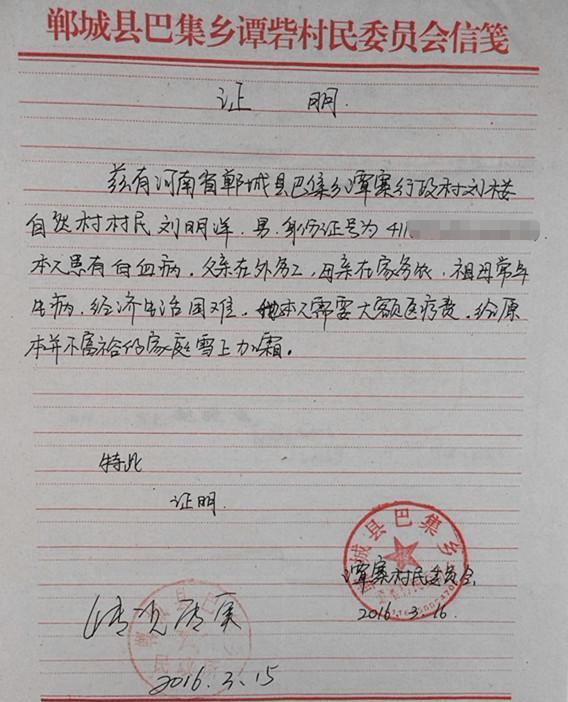 郸城县巴集乡谭砦村民委员会信笺
证 明.
兹有河南省郸城县巴集乡谭寨行政村刘楼
自然村村民刘明洋.男.身份证号为411
本人患有白血病.父亲在外务工,母亲在家务农.祖母常年
生病,经济生活困难.本人需要大额医疗费.给原
本并不富裕的家庭雪上加霜。
特此
证明.
郸城县巴集乡
谭寨村民委员会
2016.3.16.
情况属实
2016.3.15